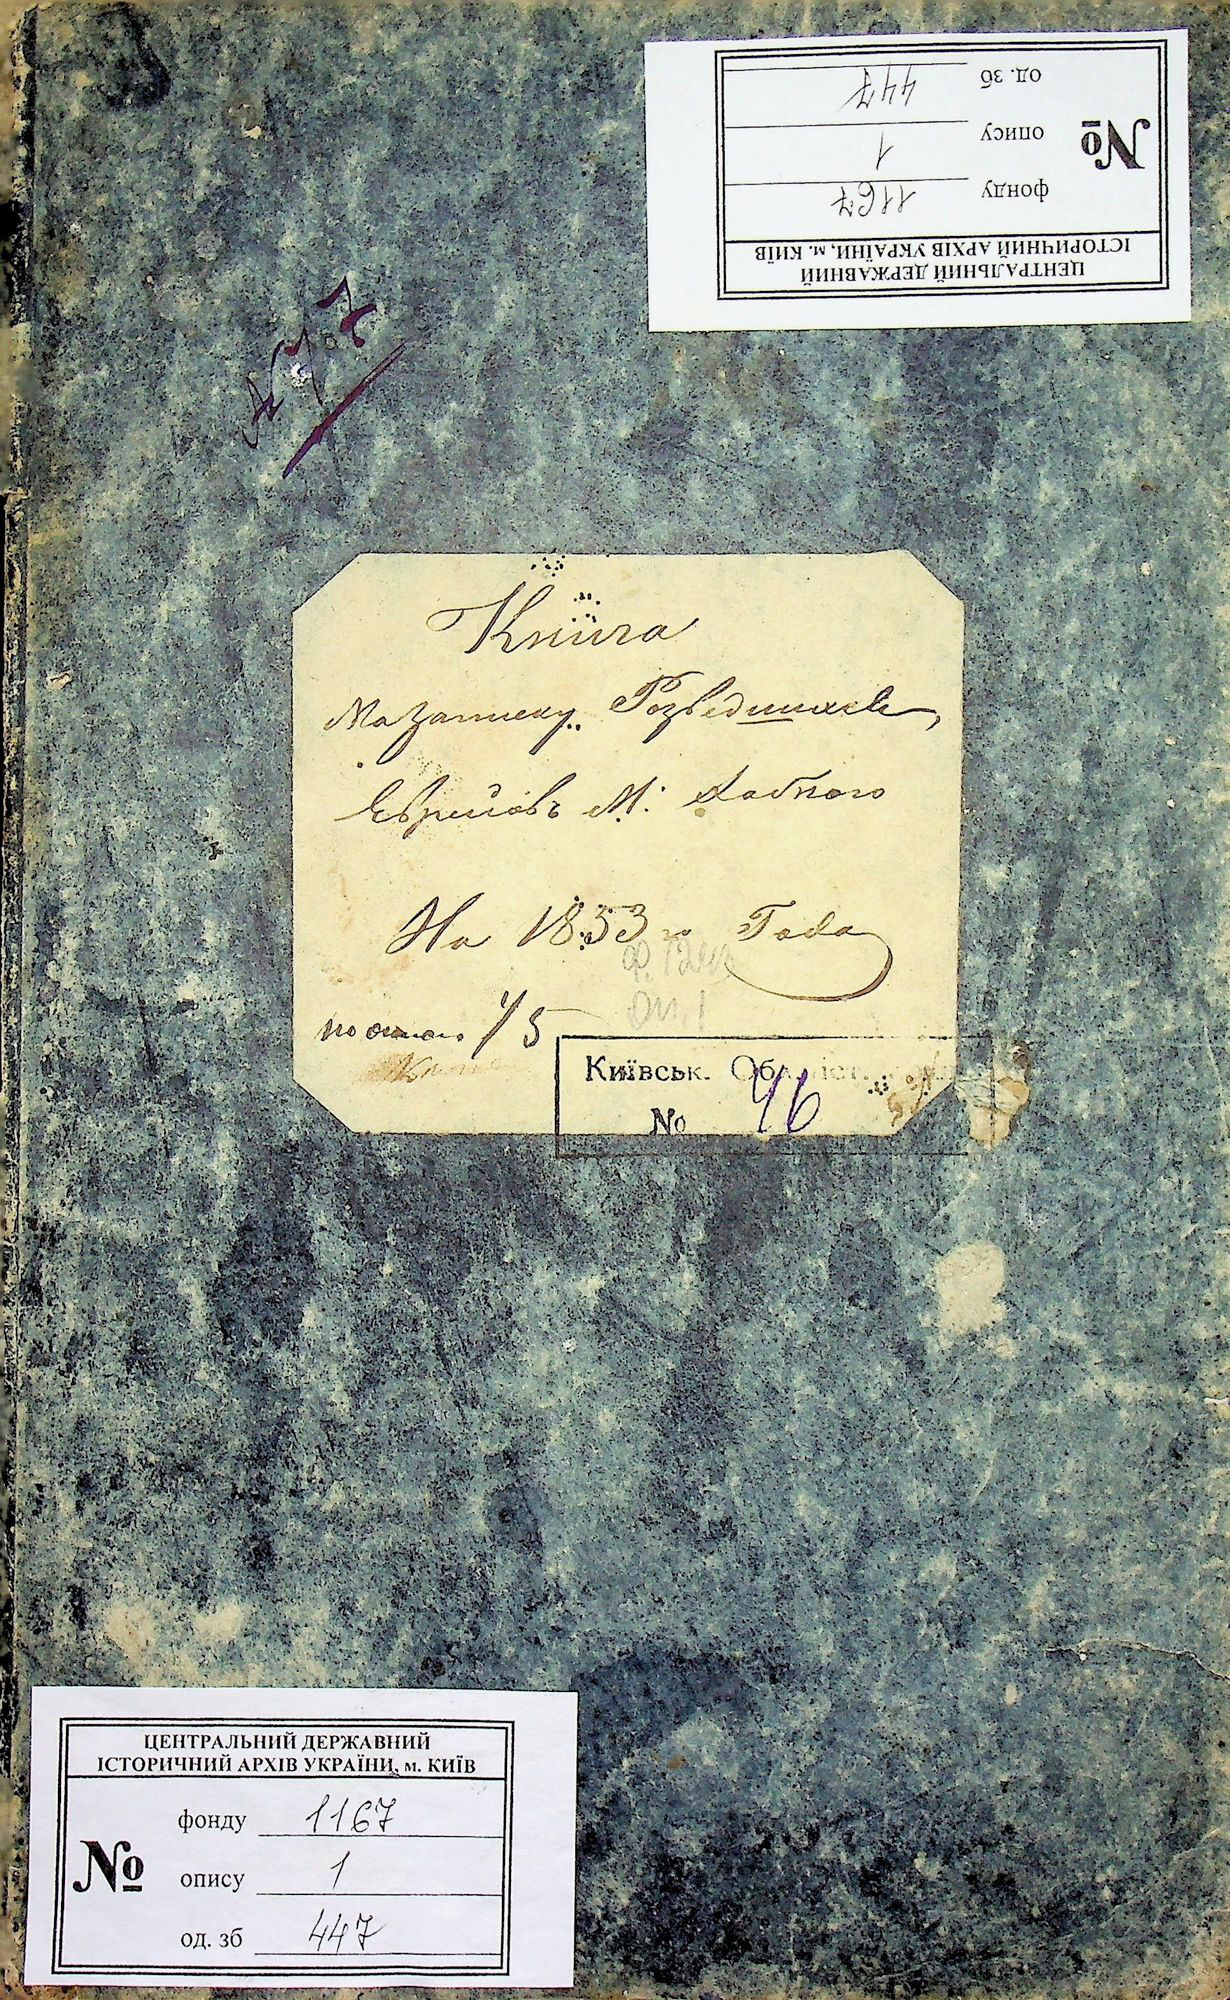 ЦЕНТРАЛЬНИЙ ДЕРЖАВНИЙ
ІСТОРИЧНИЙ АРХІВ УКРАЇНИ, м. КИЇВ
№
фонду 1167
опису 1
од. зб 447
Книга
На записку Розведшихся
Евреговъ М: Хабного
На 1853 го Года
75
Ф.
оп. 1
Київськ.
№ 46
ЦЕНТРАЛЬНИЙ ДЕРЖАВНИЙ
ІСТОРИЧНИЙ АРХІВ УКРАЇНИ, м. КИЇВ
№
фонду 1167
опису 1
од. зб 447